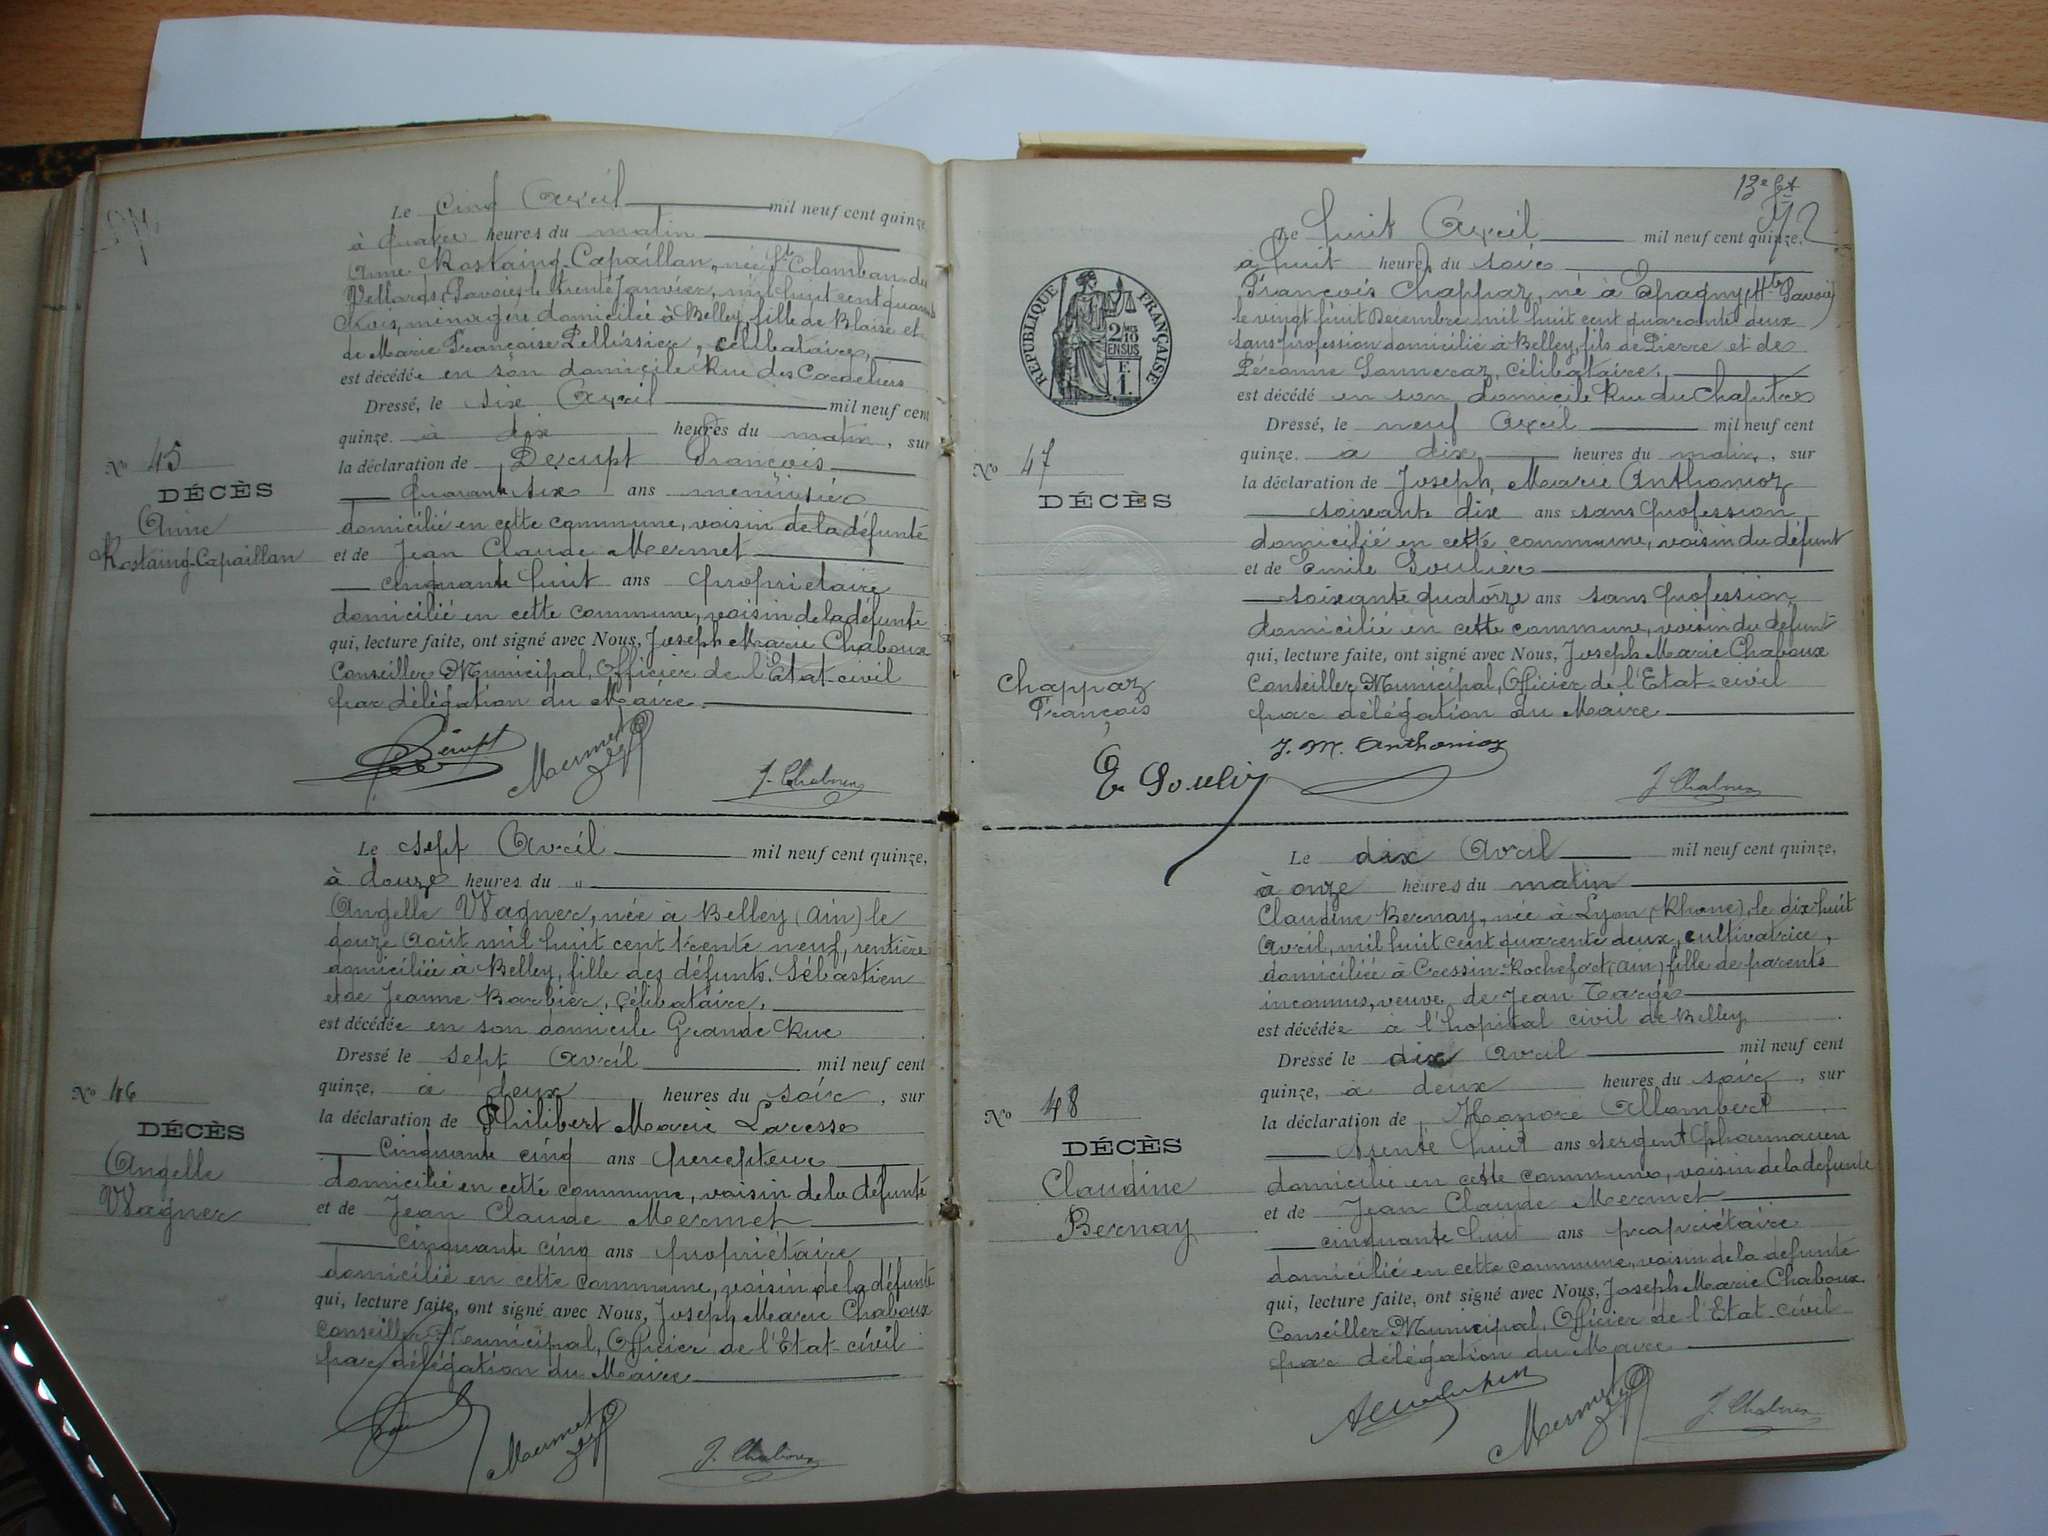 Le cinq Avril mil neuf cent quinze,
à quatre heures du matin
Anne Rostaing-Capaillan, née St Colomban des
Villards, Savoie, le trente Janvier, mil huit cent quarante
trois, ménagère domiciliée à Belley, fille de Blaise et
de Marie Françoise Pellissier, célibataire,
est décédée en son domicile Rue des Cordeliers
Dressé, le six Avril mil neuf cent
quinze à dix heures du matin, sur
la déclaration de François
quarante six ans menuisier
domicilié en cette commune, voisin de la défunte
et de Jean Claude Mermet
cinquante huit ans propriétaire
domicilié en cette commune, voisin de la défunte
qui, lecture faite, ont signé avec Nous, Joseph Marie Chaboux
Conseiller Municipal, Officier de l'Etat-civil
par délégation du Maire.
No 45
DÉCÈS
Anne
Rostaing-Capaillan
Mermet
J. Chaboux
Le sept Avril mil neuf cent quinze,
à douze heures du "
Angelle Wagner, née à Belley (Ain) le
douze Août mil huit cent trente neuf, rentière
domiciliée à Belley, fille des défunts Sébastien
et de Jeanne Barbier, célibataire,
est décédée en son domicile Grande Rue
Dressé le sept Avril mil neuf cent
quinze, à deux heures du soir, sur
la déclaration de Philibert Marie Laresse
Cinquante cinq ans percepteur
domicilié en cette commune, voisin de la défunte
et de Jean Claude Mermet
cinquante cinq ans propriétaire
domicilié en cette commune, voisin de la défunte
qui, lecture faite, ont signé avec Nous, Joseph Marie Chaboux
Conseiller Municipal, Officier de l'Etat-civil
par délégation du Maire
No 46
DÉCÈS
Angelle
Wagner
Mermet
J. Chaboux
13e ft
72
Le huit Avril mil neuf cent quinze,
à huit heures du soir
François Chappaz, né à Epagny, (Hte Savoie)
le vingt huit Décembre mil huit cent quarante deux
sans profession domicilié à Belley, fils de Pierre et de
Péronne Sonneraz, célibataire,
est décédé en son domicile Rue du Chapitre
Dressé, le neuf Avril mil neuf cent
quinze. à dix heures du matin, sur
la déclaration de Joseph, Marie Anthonioz
soixante dix ans sans profession
domicilié en cette commune, voisin du défunt
et de Emile Soulier
soixante quatorze ans sans profession
domicilié en cette commune, voisin du défunt
qui, lecture faite, ont signé avec Nous, Joseph Marie Chaboux
Conseiller Municipal, Officier de l'Etat-civil
par délégation du Maire
RÉPUBLIQUE FRANÇAISE
2/10
EN SUS
F.
1.
No 47
DÉCÈS
Chappaz
François
E. Soulier
J. M. Anthonioz
J. Chaboux
Le dix Avril mil neuf cent quinze,
à onze heures du matin
Claudine Bernay, née à Lyon (Rhône), le dix huit
Avril, mil huit cent quarante deux, cultivatrice,
domiciliée à Cressin-Rochefort (Ain) fille de parents
inconnus, veuve de Jean
est décédée à l'hopital civil de Belley
Dressé le dix Avril mil neuf cent
quinze, à deux heures du soir, sur
la déclaration de Honoré Allombert
trente huit ans sergent pharmacien
domicilié en cette commune, voisin de la défunte
et de Jean Claude Mermet
cinquante huit ans propriétaire
domicilié en cette commune, voisin de la défunte
qui, lecture faite, ont signé avec Nous, Joseph Marie Chaboux
Conseiller Municipal, Officier de l'Etat-civil
par délégation du Maire
No 48
DÉCÈS
Claudine
Bernay
Mermet
J. Chaboux